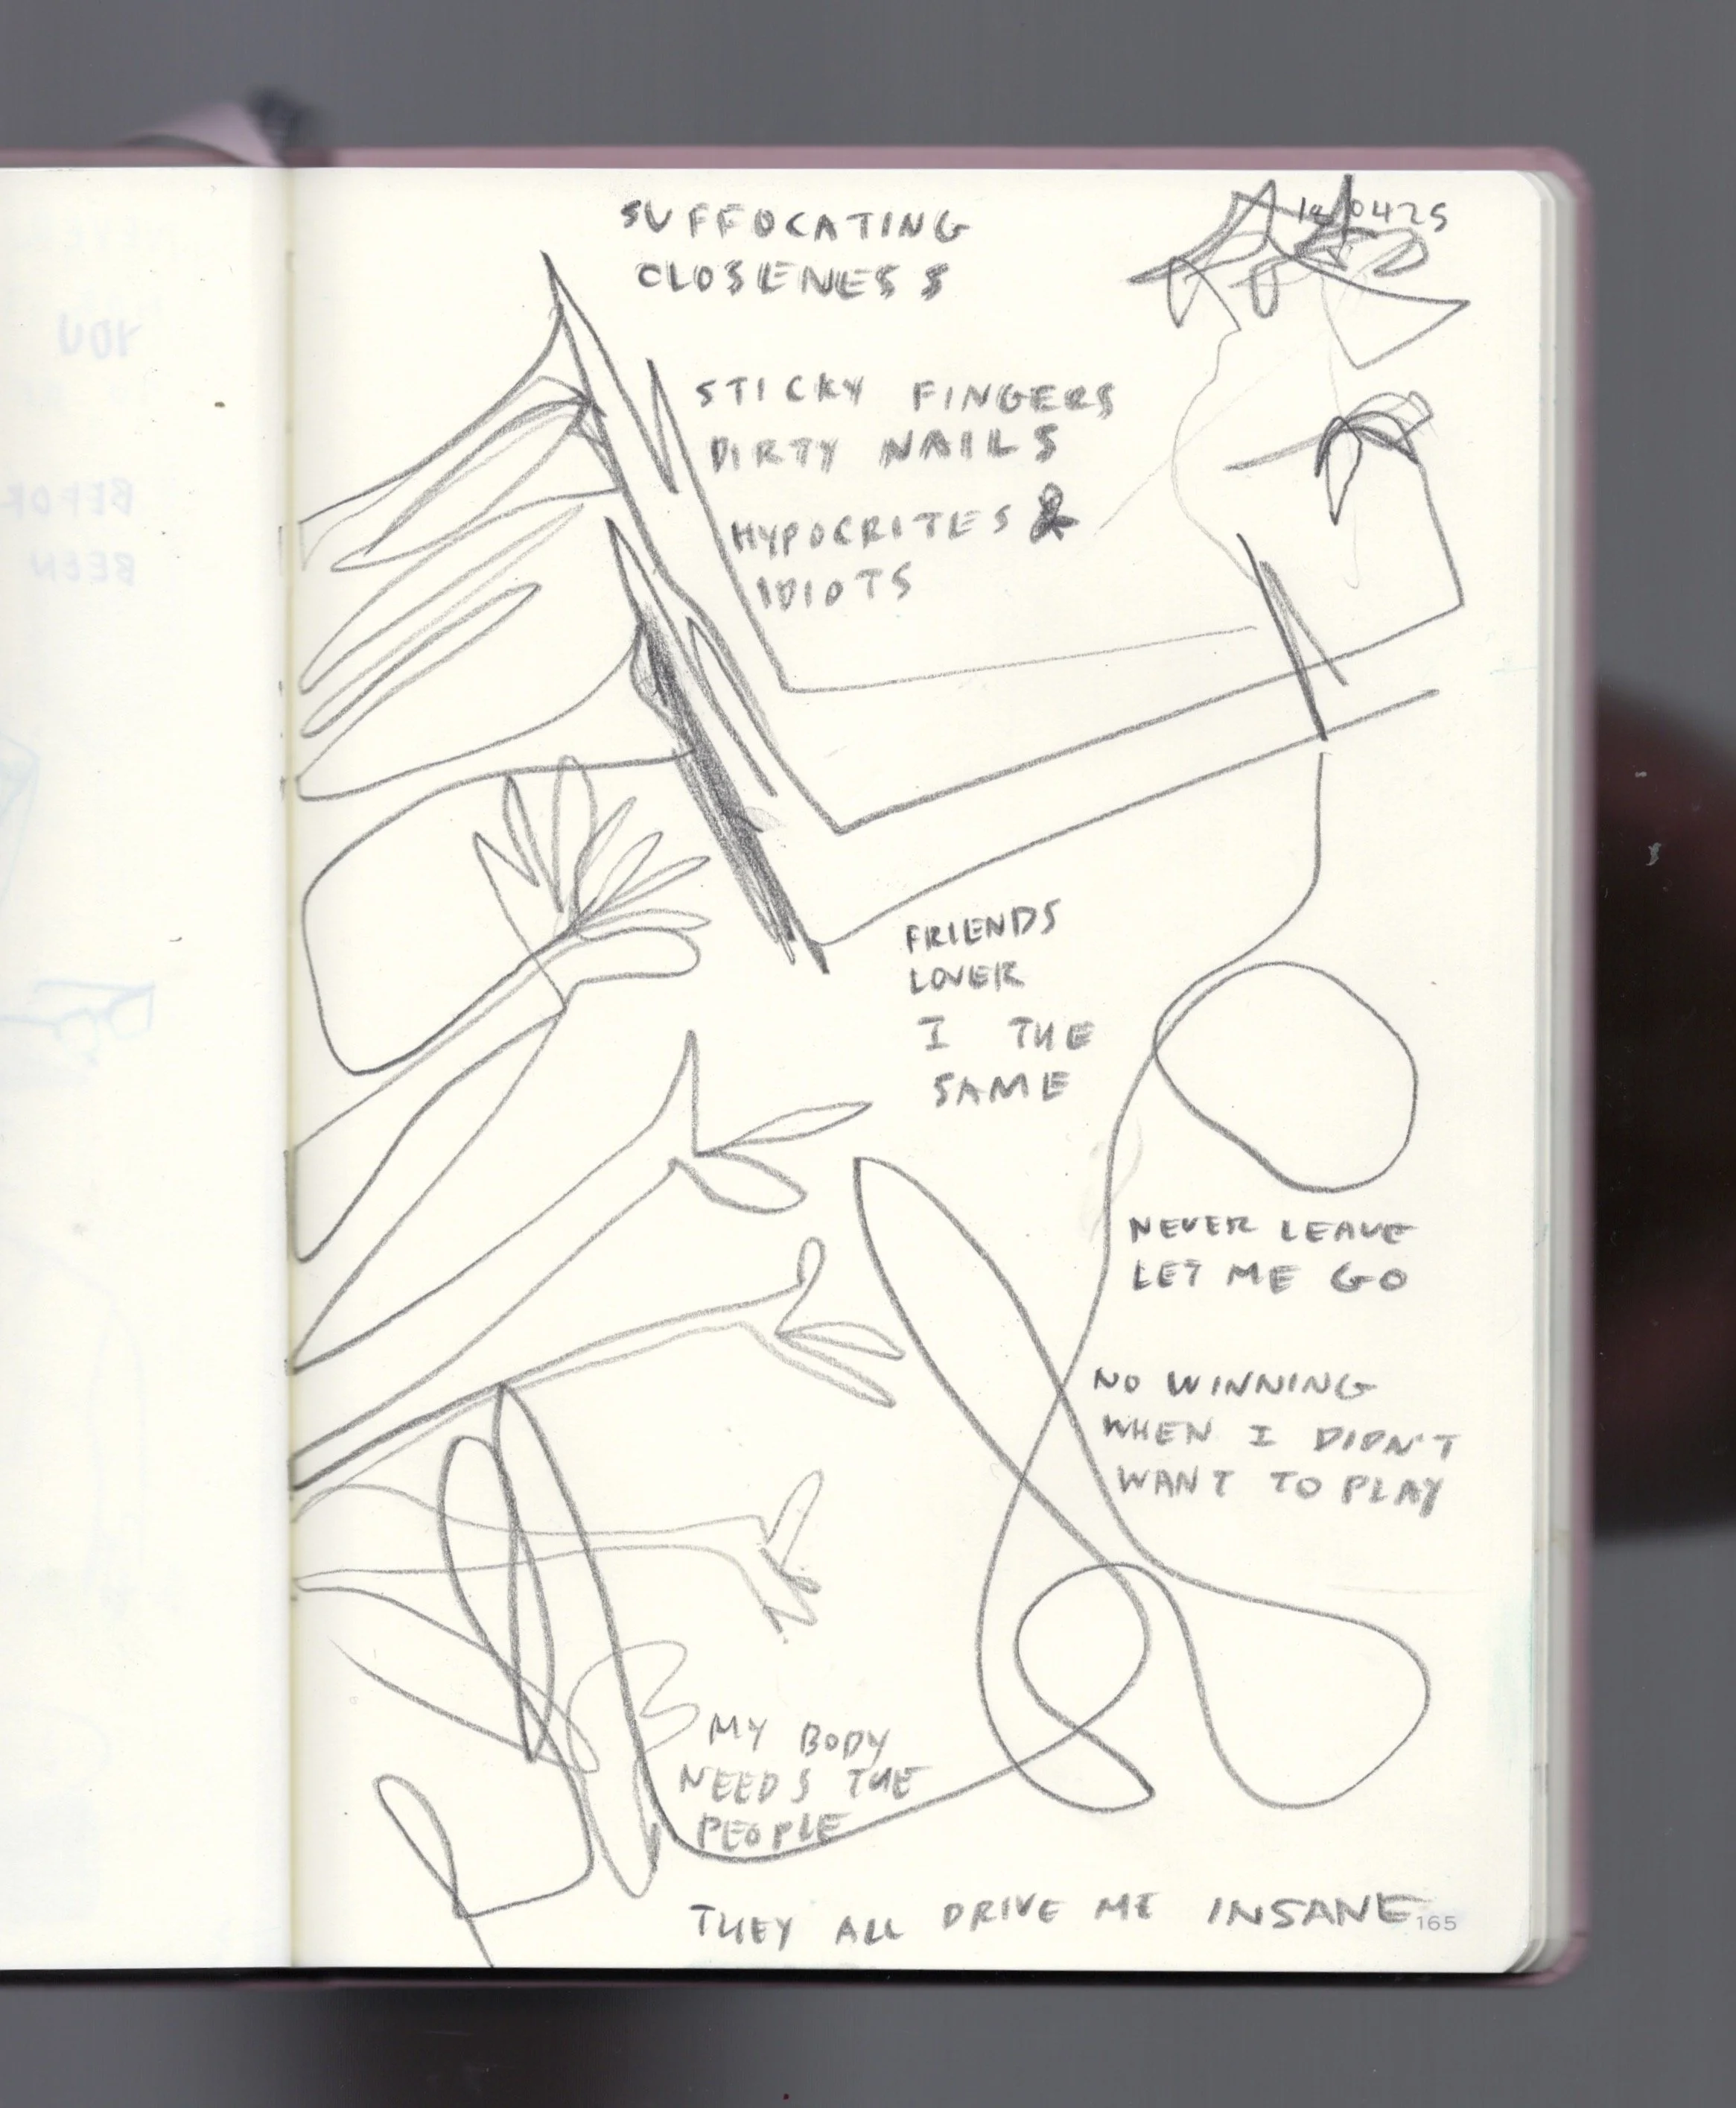 SUFFOCATING
CLOSENESS
STICKY FINGERS
DIRTY NAILS
HYPOCRITES &
IDIOTS
FRIENDS
LOVER
I THE
SAME
NEVER LEAVE
LET ME GO
NO WINNING
WHEN I DIDN'T
WANT TO PLAY
MY BODY
NEEDS THE
PEOPLE
THEY ALL DRIVE ME INSANE
165